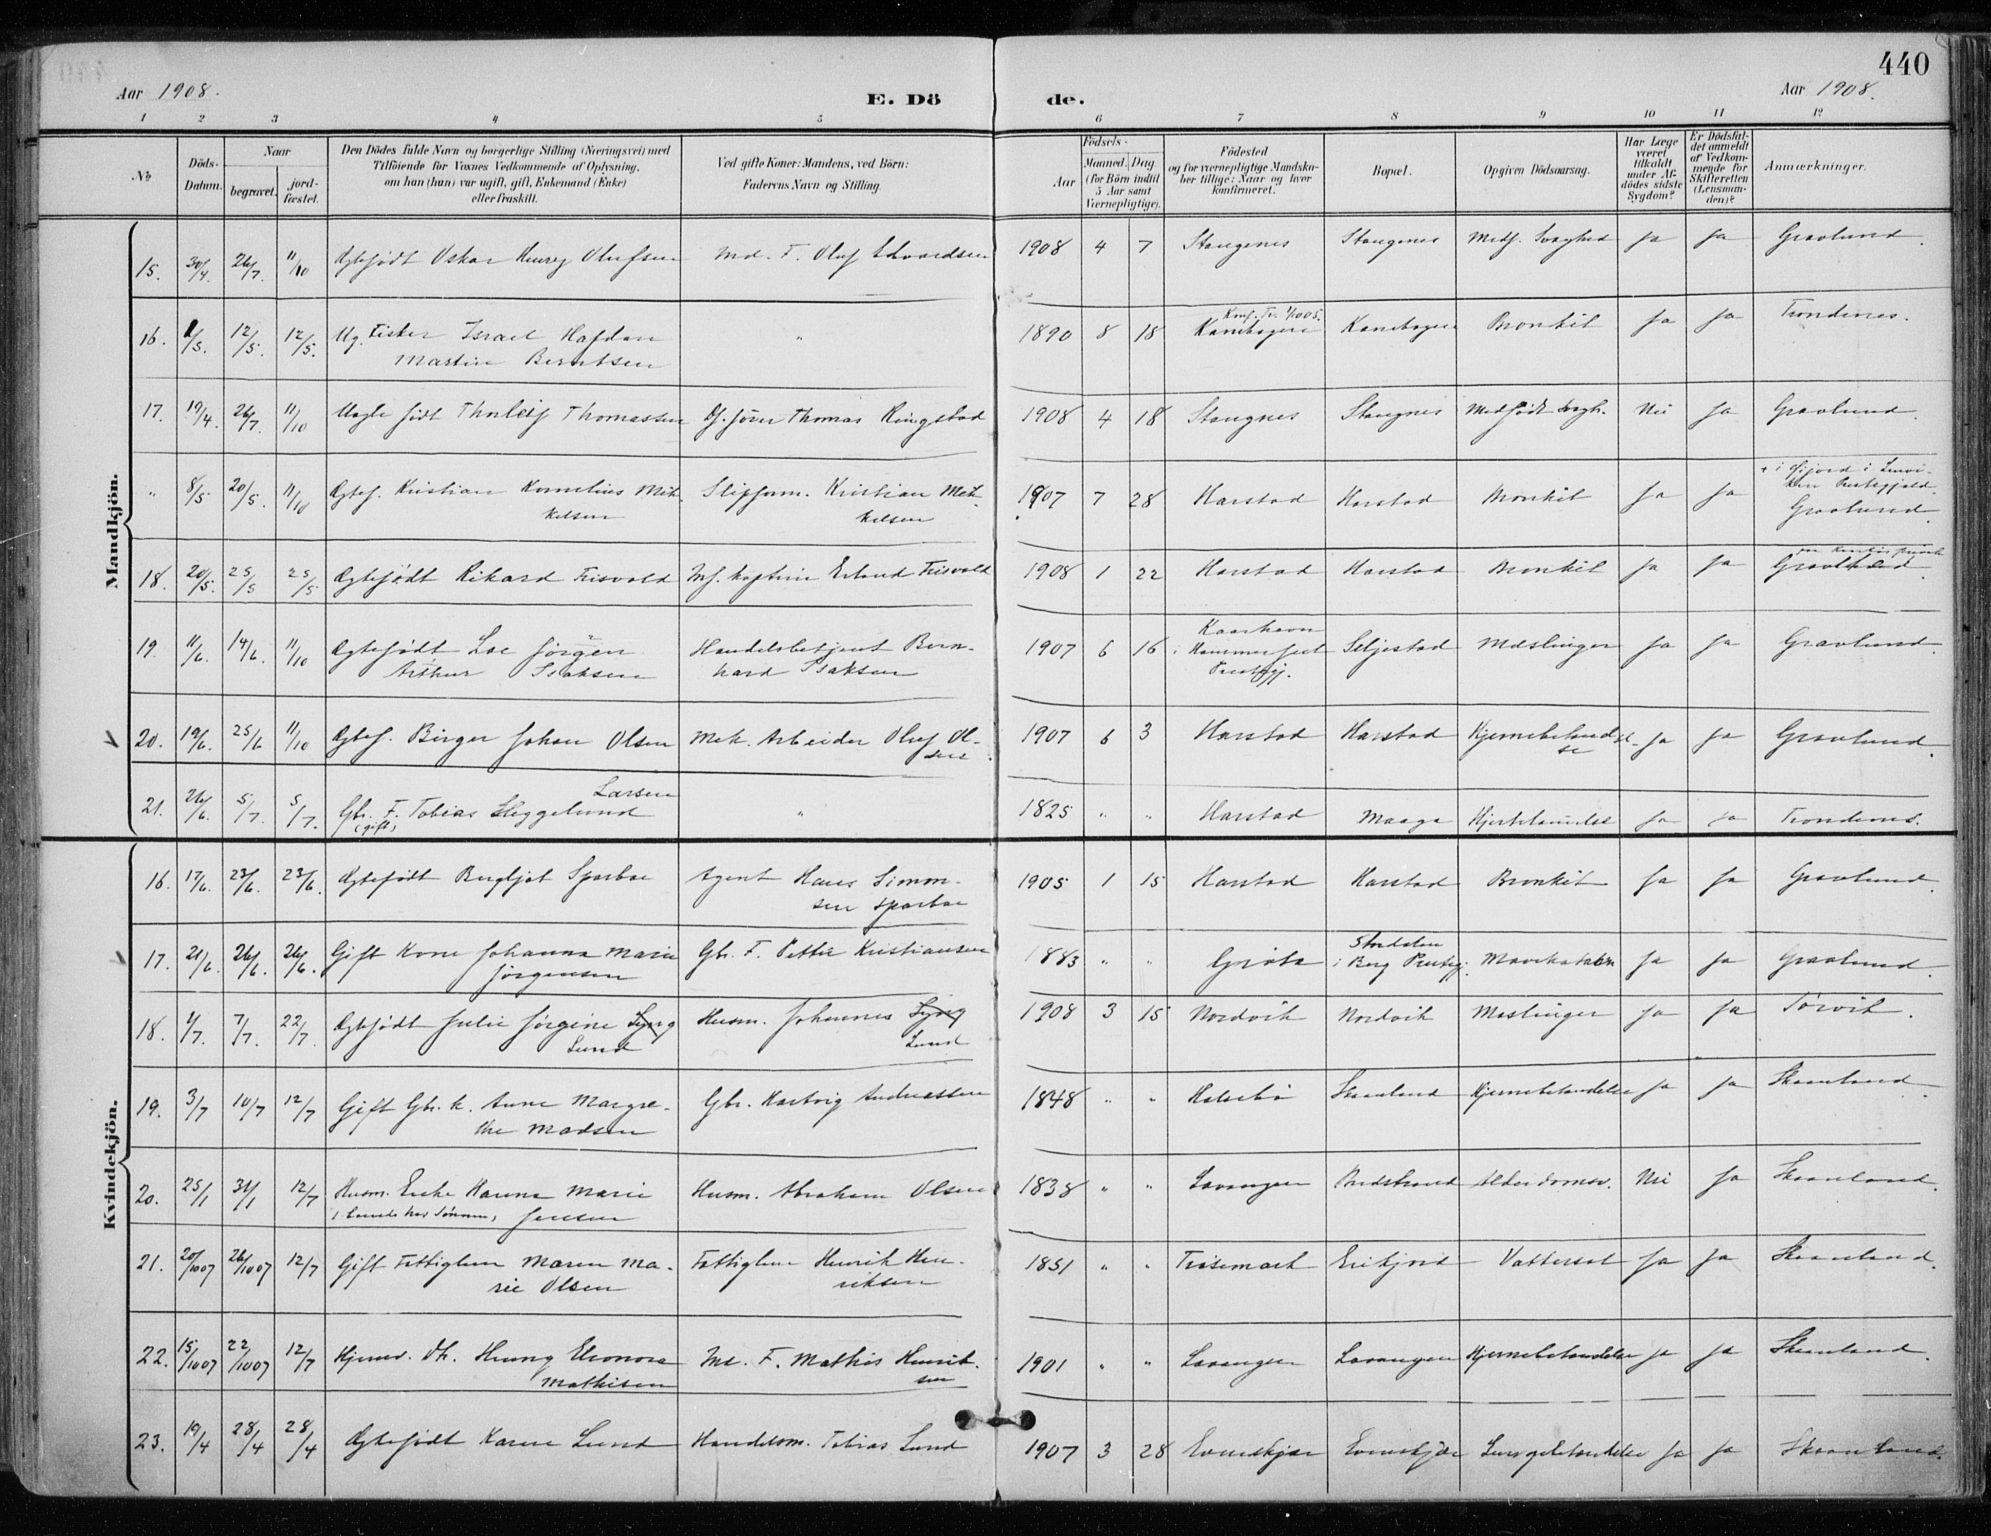 440
Aar 1908.
E. Dö
de.
Aar 1908.
1 2 3 4 5 6 7 8 9 10 11 12
No
Döds-
Datum.
Naar
begravet.
jord-
fæstet.
Den Dödes fulde Navn og borgerlige Stilling (Næringsvei) med
Tilföiende for Voxnes Vedkommende af Oplysning,
om han (hun) var ugift, gift, Enkemand (Enke)
eller fraskilt.
Ved gifte Koner: Mandens, ved Börn:
Faderens Navn og Stilling.
Födsels-
Aar
Maaned. Dag.
(for Börn indtil
5 Aar samt
Værnepligtige).
Födested
og for værnepligtige Mandska-
ber tillige: Naar og hvor
konfirmeret.
Bopæl.
Opgiven Dödsaarsag.
Har Læge
været
tilkaldt
under Af-
dödes sidste
Sygdom?
Er Dödsfal-
det anmeldt
af Vedkom-
mende for
Skifteretten
(Lensman-
den)?
Anmærkninger.
Mandkjön.
15. 30/4 26/7. 11/10 Ægtefödt Oskar Henrey Olufsen Md. F. Oluf Edvardsen 1908 4 7 Stangenes Stangenes Medf. Svaghed Ja Ja Gravlund.
Konf. Tr. 1/1005.
16. 1/5. 12/5. 12/5. Ug. Fisker Israel Hafdan " 1890 8 18 Kanebogen Kanebogen Bronkit Ja Ja Trondenes.
Martin Berntsen
17. 19/4. 26/7. 11/10 Uægte födt Thorleif Thomassen Thomas Ringstad 1908 4 18 Stangnes Stangnes Medfödt Svagh. Nei Ja Gravlund.
" 8/5 20/5. 11/10 Ægtef. Kristian Kornelius Mik- Slipform. Kristian Mik- 1907 7 28 Harstad Harstad Bronkit Ja Ja
kelsen kelsen Gravlund
18. 20/5. 25/5 25/5. Ægtefödt Rikard Trisvold Erland Trisvold 1908 1 22 Harstad Harstad Bronkit Ja Ja Gravlund.
19. 11/6. 14/6. 11/10 Ægtefödt Jörgen Handelsbetjent Bern- 1907 6 16 Kaarhavn Seljestad Mæslinger Ja Ja Gravlund.
Arthur Isaksen hard Isaksen i Hammerfest
Prestegj.
20. 19/6. 25/6 11/10 Ægtef. Birger Johan Olsen Mek. Arbeider Oluf Ol- 1907 6 3 Harstad Harstad Hjernebetænd- Ja Ja Gravlund.
sen. se
Larsen
21. 26/6. 5/7. 5/7. Gbr. F. Tobias Sleggelund " 1825 " " Harstad Maaga Hjertelammelse Ja Ja Trondenes.
(gift)
Kvindekjön.
16. 17/6. 23/6. 23/6. Ægtefödt Bergljot Sparboe Agent Hans Simon- 1905 1 15 Harstad Harstad Bronkit Ja Ja Gravlund.
sen Sparboe
17. 21/6. 26/6. 26/6. Gift Kone Johanna Marie Gbr. F. Petter Kristiansen 1883 " " Gröta i Berg Prestegj. Mavekatarrh Ja Ja Gravlund.
Jörgensen
18. 1/7. 7/7. 22/7. Ægtefödt Julie Jörgine Lyng Husm. Johannes Lyng 1908 3 15 Nordvik Nordvik Mæslinger Ja Ja Sörvik.
Lund Lund
19. 3/7 10/7 12/7 Gift Gbr. k. Anne Margre- Gbr. Hartvig Andreassen 1848 " " Halsebö Skaanland Hjernebetændelse Ja Ja Skaanland.
the Madsen
20. 25/1 31/1 12/7 Husm. Enke Hanna Marie Husm. Abraham Olsen 1838 " " Lavangen Budstrand Alderdomssv. Nei Ja Skaanland.
Jensen
21. 20/1007 26/1007 12/7 Gift Fattiglem Maren Ma- Fattiglem Henrik Hen- 1851 " " Trösemark Erikjord Vattersot Ja Ja Skaanland.
rie Olsen riksen
22. 15/1007 22/1007 12/7 Eleonora Md. F. Mathis Henrik- 1901 " " Lavangen Lavangen Hjernebetændelse Ja Ja Skaanland.
Mathisen sen
23. 19/4 28/4 28/4 Ægtefödt Karen Lund Handelsm. Tobias Lund 1907 3 28 Evenskjær Evenskjær Lungebetændelse Ja Ja Skaanland.